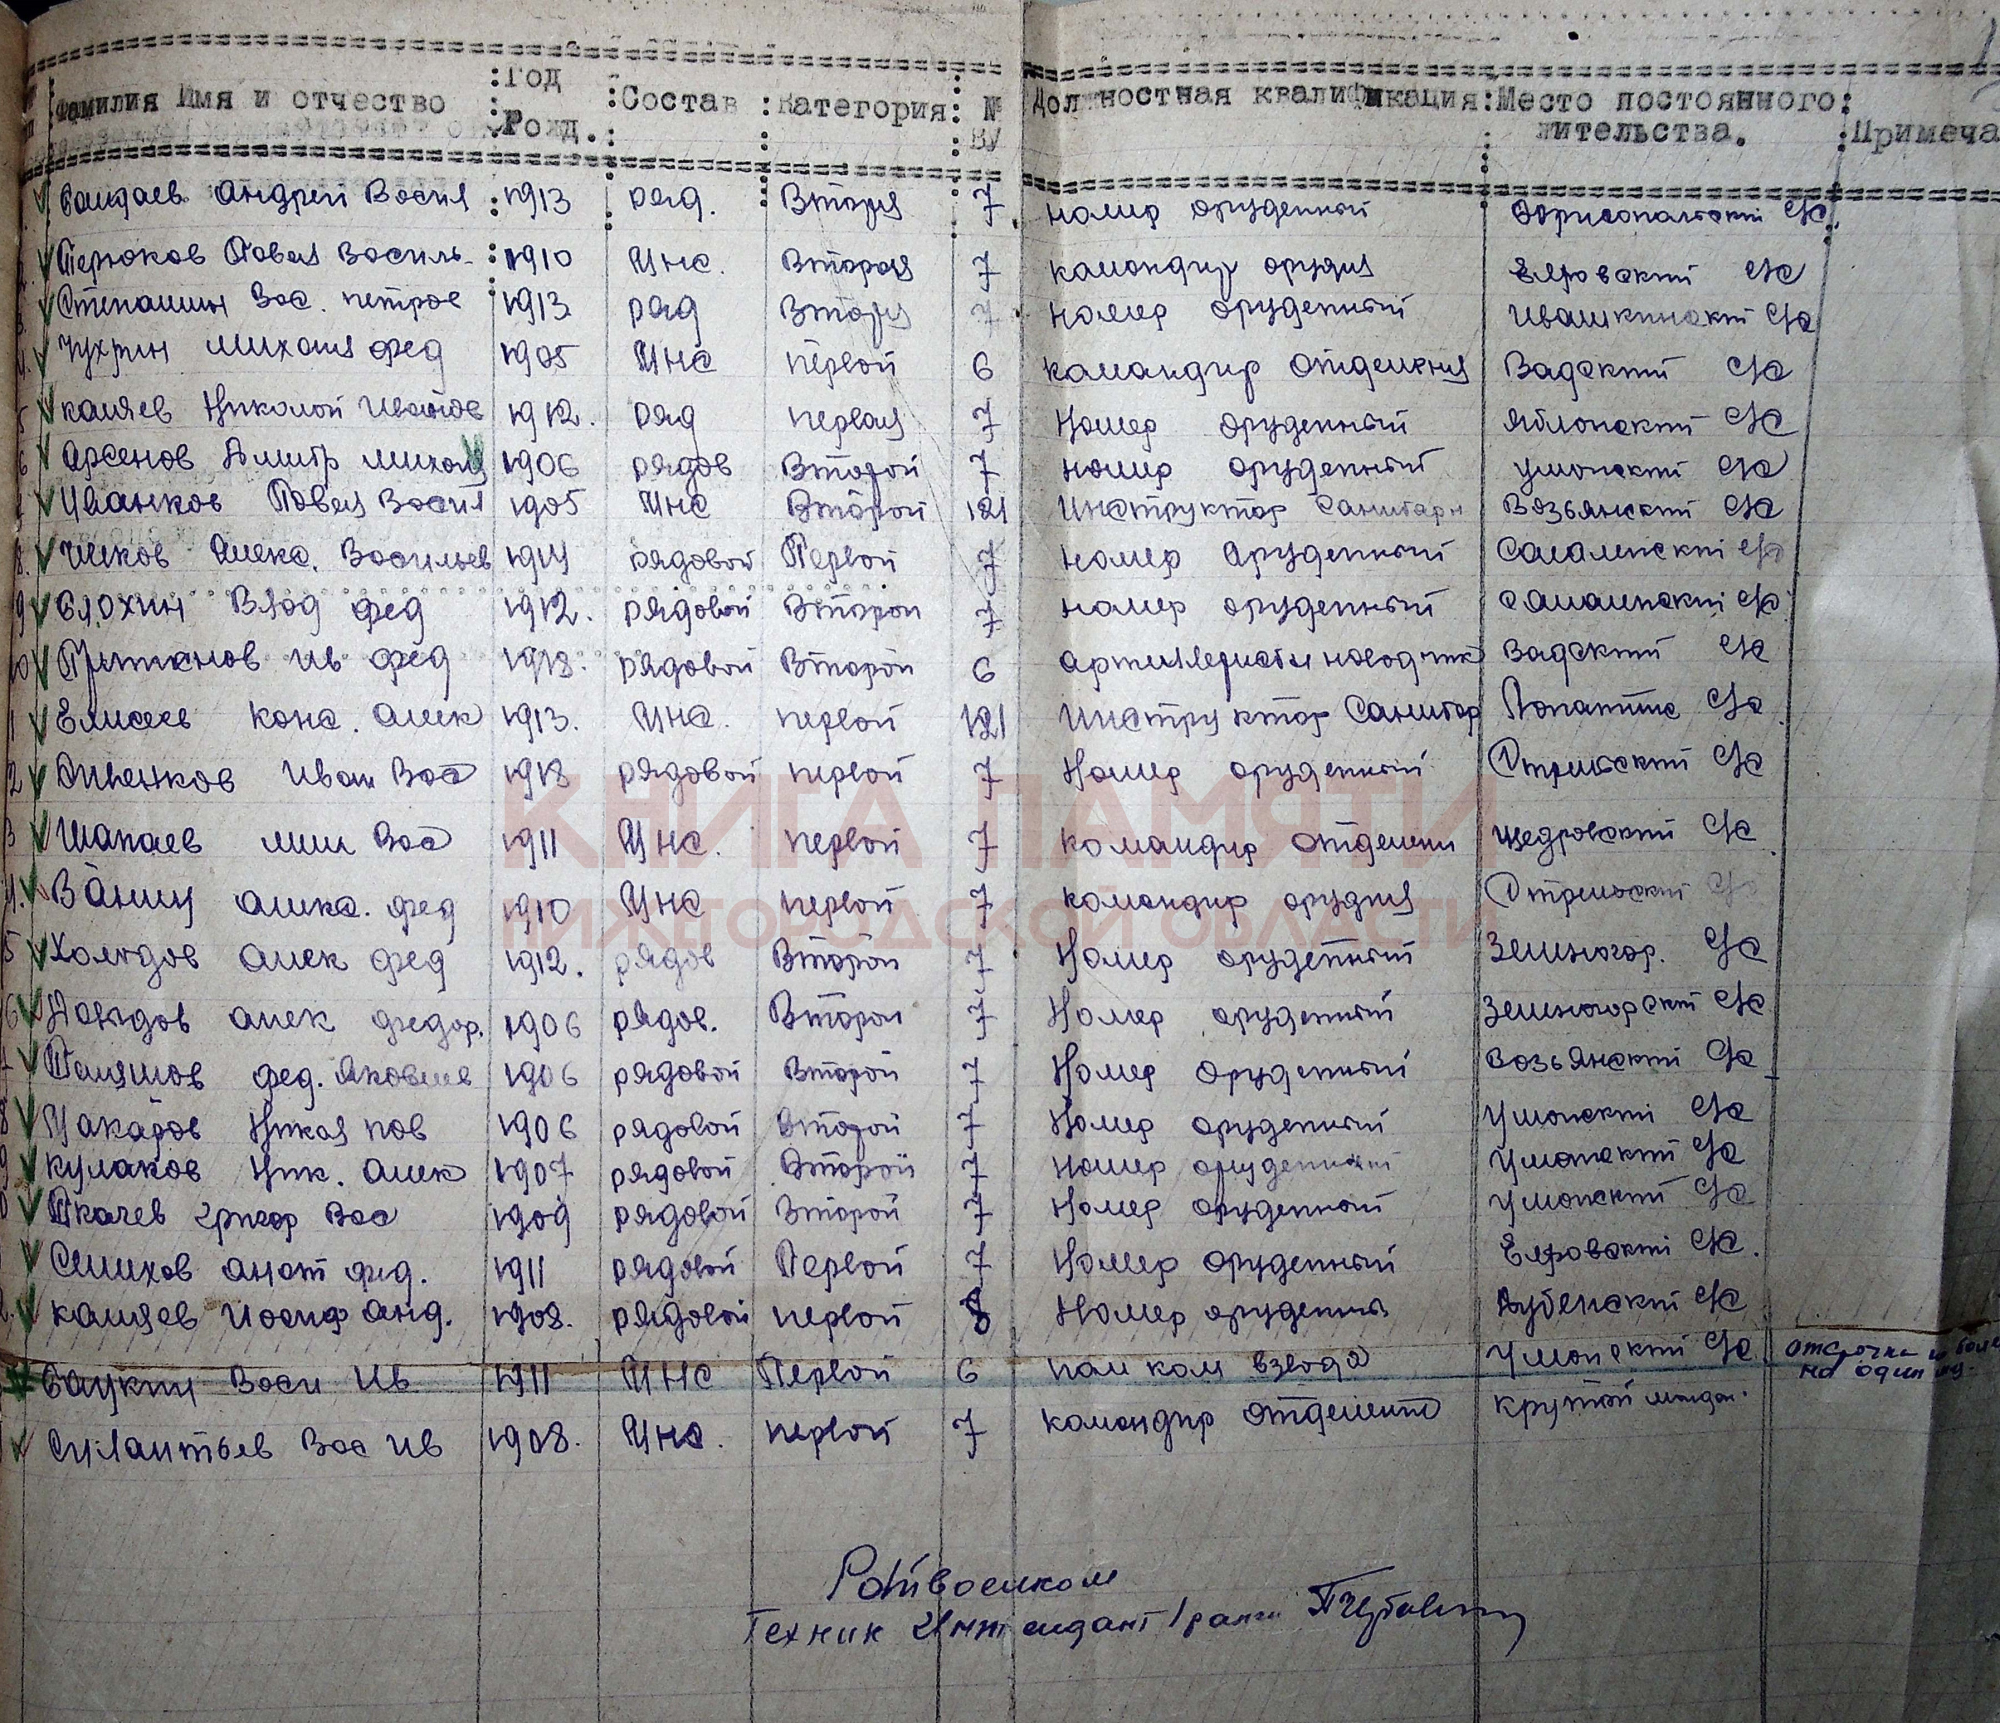 Фамилия Имя и отчество : Год Рожд. : Состав : Категория : № ВУ Должностная квалификация : Место постоянного жительства. : Примеча
Андрей Васил 1913 ряд. Вторая 7 номер орудейный с/с
Перюков Павел Василь. 1910 МНС. Вторая 7 командир орудия Елховский с/с
Степашин Вас. петров 1913 ряд Вторая 7 номер орудейный Ивашкинский с/с
4. Чухрин михаил фед 1905 МНС первой 6 командир отделения Вадский с/с
5 каляев Николай Иванов 1912. ряд первая 7 Номер орудейный Яблонский с/с
6 Арсенов Дмитр михаил 1906 рядов Второй 7 номер орудейный умонский с/с
Иванков Павел Васил 1905 МНС Второй 121 Инструктор Санитарн Возьянский с/с
8. Алекс. Васильев 1914 рядовой Первой 7 номер орудейный с/с
9 Блохин Влад фед 1912. рядовой Второй 7 номер орудейный с/с
10 ив фед 1913. рядовой Второй 6 артиллерист наводчик Вадский с/с
1 Елисеев Конс. Алек 1913. МНС. первой 121 Инструктор Санитар Лопатинс с/с
2 Иван Вас 1918 рядовой первой 7 Номер орудейный Стрельский с/с
3 Шапаев мих Вас 1911 МНС. первой 7 командир отделени щедровский с/с
4. Ванин алекс. фед 1910 МНС первой 7 командир орудия Стрельский с/с
5 Холодов алек фед 1912. рядов Второй 7 Номер орудейный Зеленогор. с/с
6 алек федор. 1906 рядов. Второй 7 Номер орудейный Зеленогорский с/с
фед. Яковлев 1906 рядовой Второй 7 Номер орудейный возьянский с/с
8 Макаров Никол пав 1906 рядовой второй 7 Номер орудейный Умонский с/с
9 кулаков Ник. алек 1907 рядовой Второй 7 номер орудейный Умонский с/с
0 Ткачев григор Вас 1909 рядовой Второй 7 Номер орудейный умонский с/с
Селихов анат фед. 1911 рядовой Первой 7 Номер орудейный Елховский с/с.
каляев Иосиф анд. 1908. рядовой первой 8 Номер орудейный Дубенский с/с
Васи Ив 1911 МНС Первой 6 пом ком взвода Умонский с/с отсрочка по боле
на один
Силантьев Вас ив 1908. МНС. первой 7 командир отделения крутой майдан.
КНИГА ПАМЯТИ
НИЖЕГОРОДСКОЙ ОБЛАСТИ
Райвоенком
Техник Интендант 1 ранга